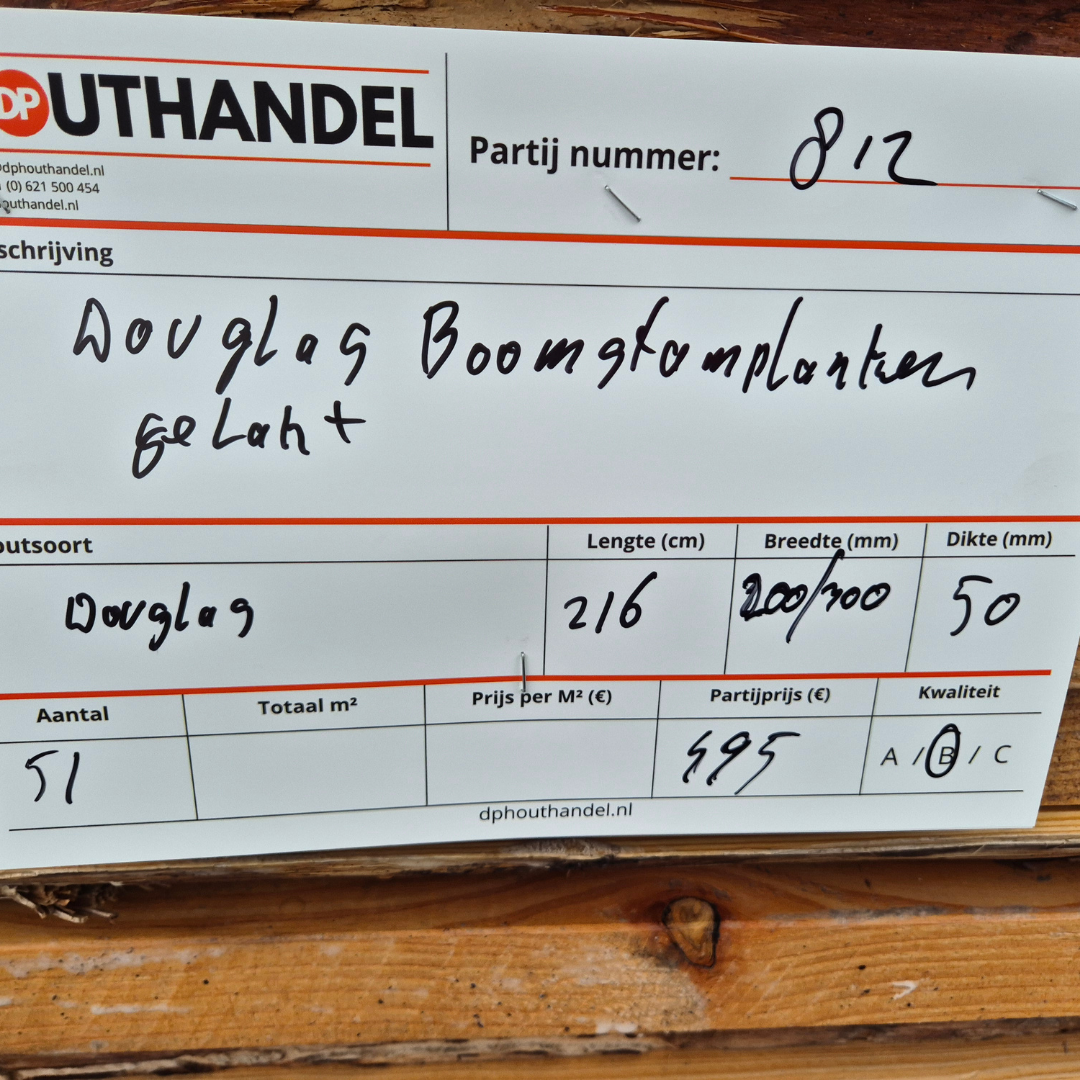 DPUTHANDEL
dphouthandel.nl
(0) 621 500 454
outhandel.nl
Partij nummer: 812
schrijving
Douglas Boomstamplanken
gekant
outsoort
Lengte (cm)
Breedte (mm)
Dikte (mm)
Douglas
216
200/300
50
Aantal
Totaal m²
Prijs per M² (€)
Partijprijs (€)
Kwaliteit
51
495
A / B / C
dphouthandel.nl